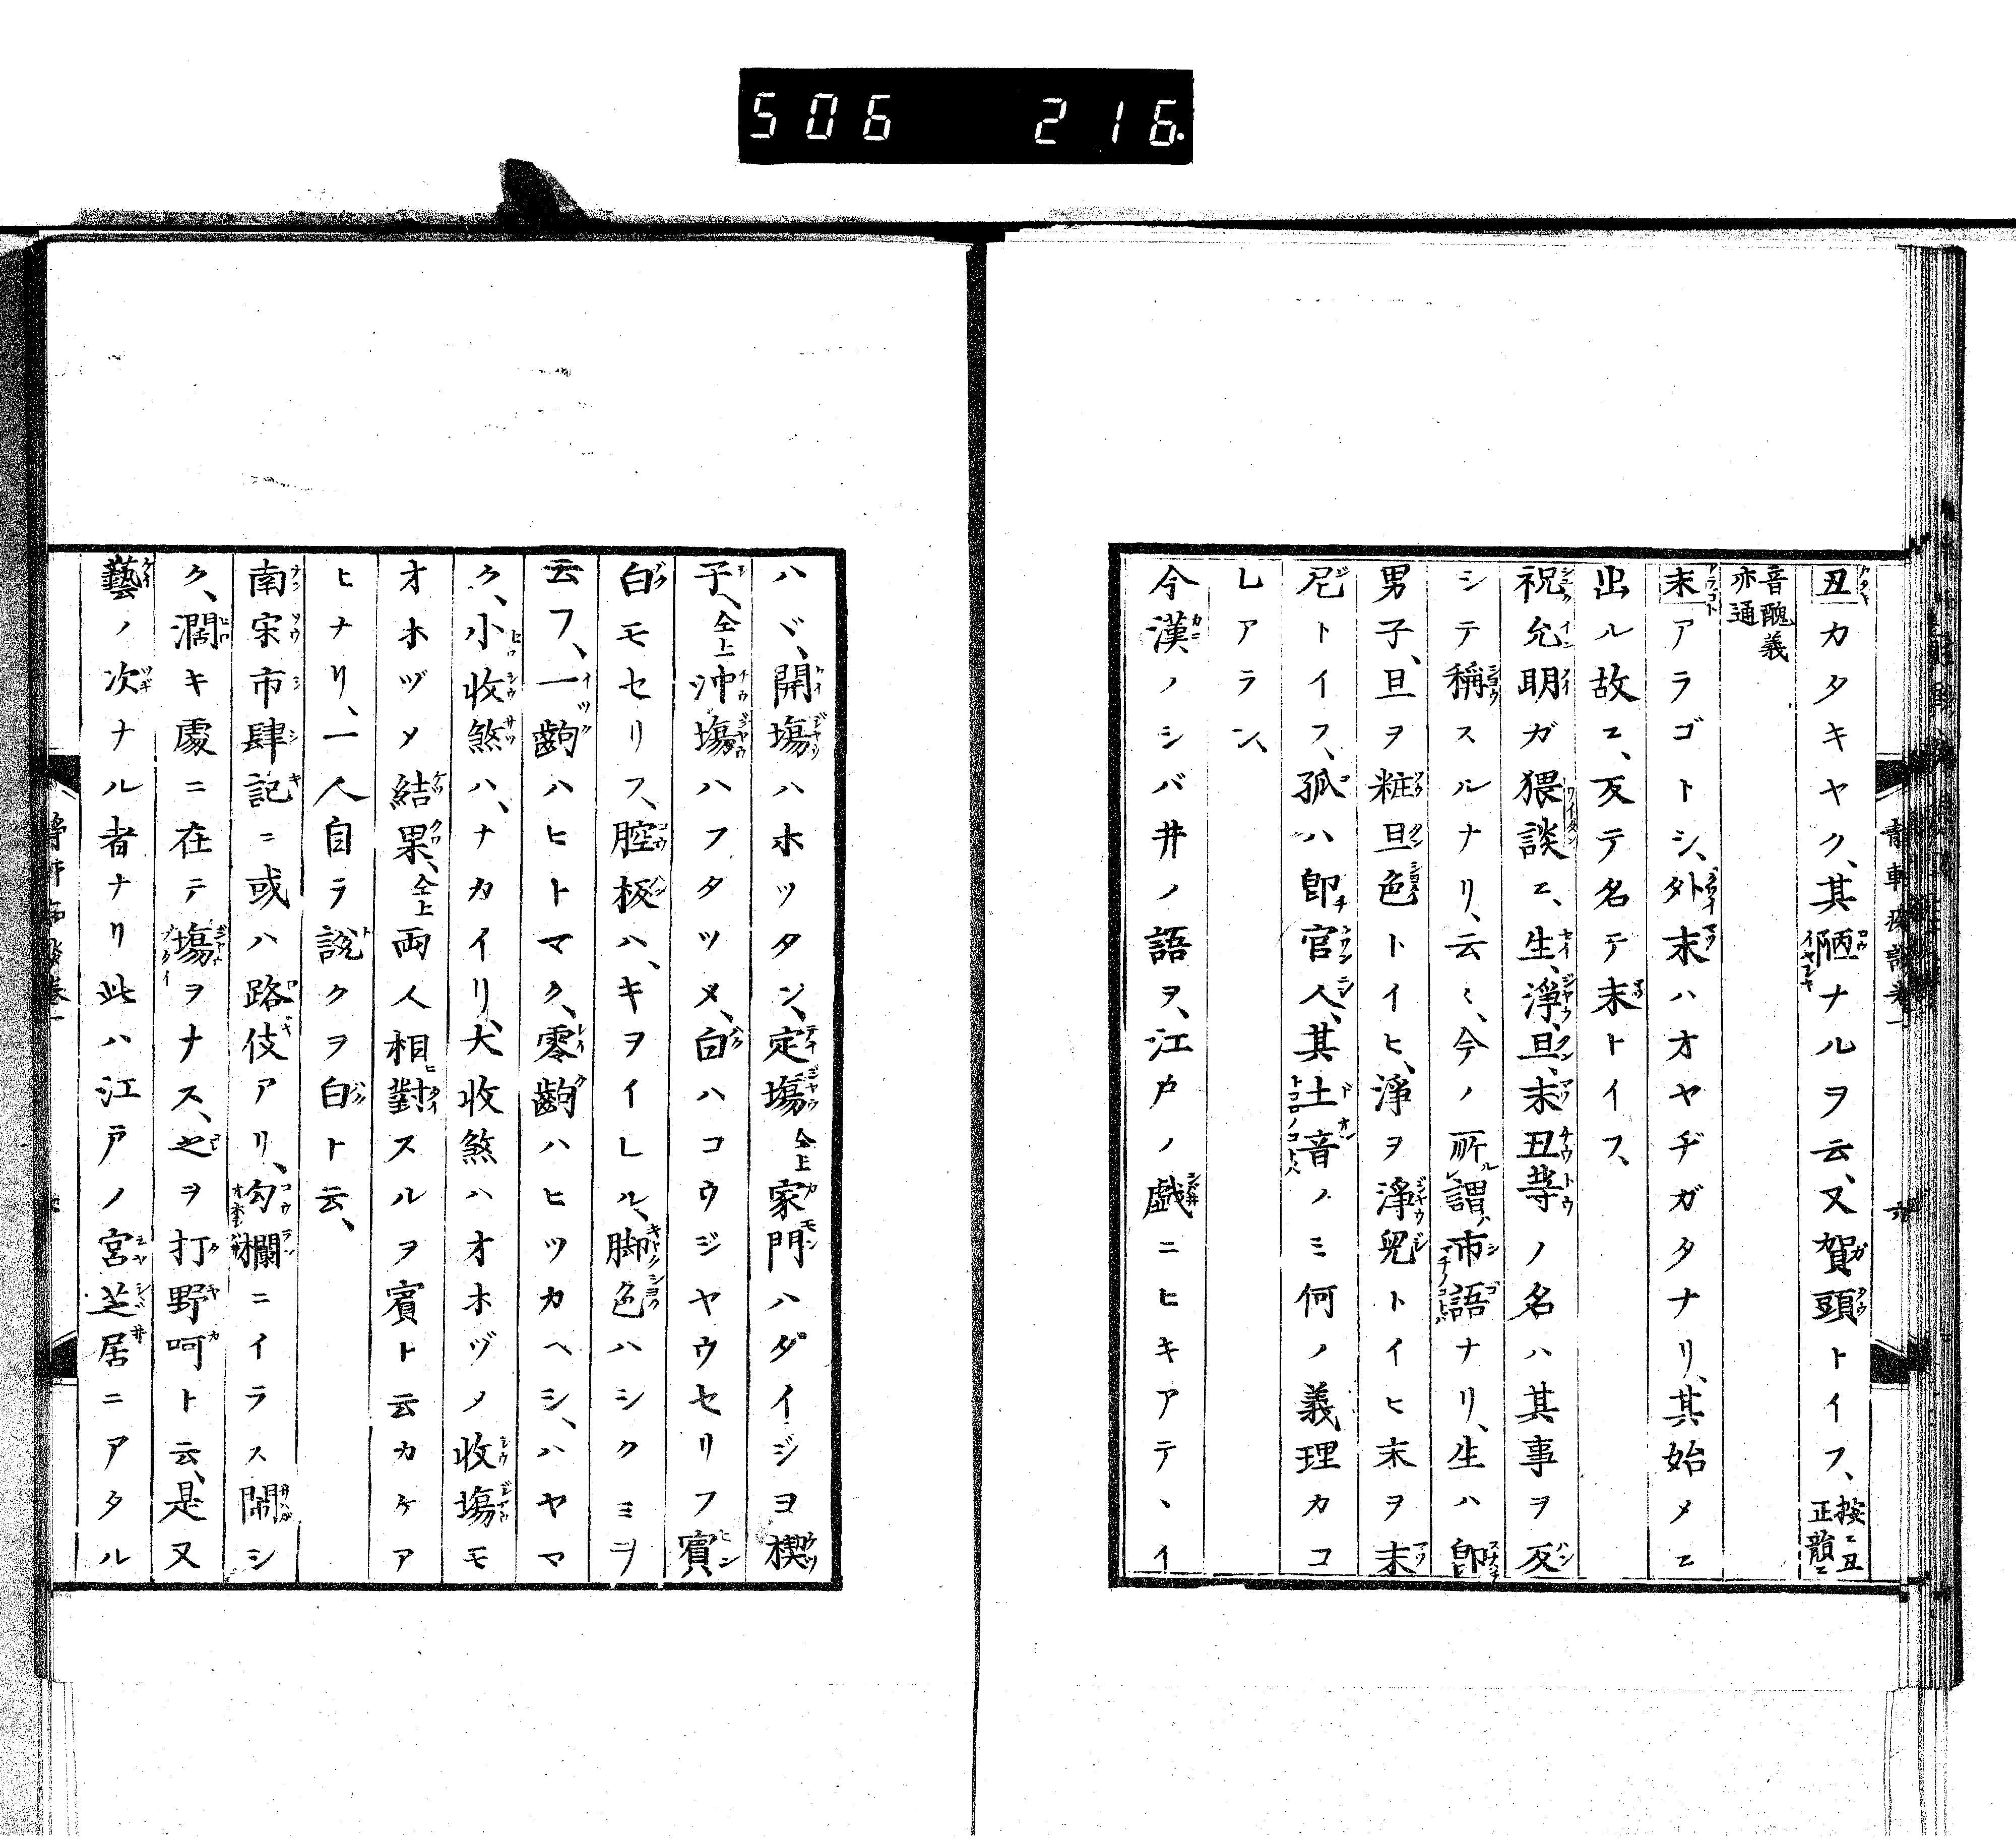 506 216.
丑カタキヤク、其陋ナルヲ云、又賀頭トイフ、按ニ丑正韻ニ
音醜義亦通
末アラゴトシ、外末ハオヤヂガタナリ、其始メニ
出ル故ニ、反テ名テ末トイフ、
祝允明ガ猥談ニ、生、淨、旦、末丑等ノ名ハ其事ヲ反
シテ稱スルナリ、云〻、今ノ所謂市語ナリ、生ハ即
男子、旦ヲ粧旦色トイヒ、淨ヲ淨兒トイヒ末ヲ末
尼トイフ、孤ハ即官人、其土音ノミ何ノ義理カコ
レアラン、
今漢ノシバ井ノ語ヲ、江戸ノ戯ニヒキアテ、イ
ハヾ、開塲ハホツタン、定塲仝上家門ハダイジヨ楔
子、仝上沖塲ハフタツメ、白ハコウジヤウセリフ賓
白モセリフ、腔板ハ、キヲイレル、脚色ハシクミヲ
云フ、一齣ハヒトマク、零齣ハヒツカヘシ、ハヤマ
ク、小收煞ハ、ナカイリ、大收煞ハオホヅメ收塲モ
オホヅメ結果、仝上両人相對スルヲ賓ト云カケア
ヒナリ、一人自ラ説クヲ白ト云、
南宋市肆記ニ或ハ路伎アリ、勾欄ニイラス閙シ
ク、濶キ處ニ在テ塲ヲナス、之ヲ打野呵ト云、是又
藝ノ次ナル者ナリ此ハ江戸ノ宮芝居ニアタル